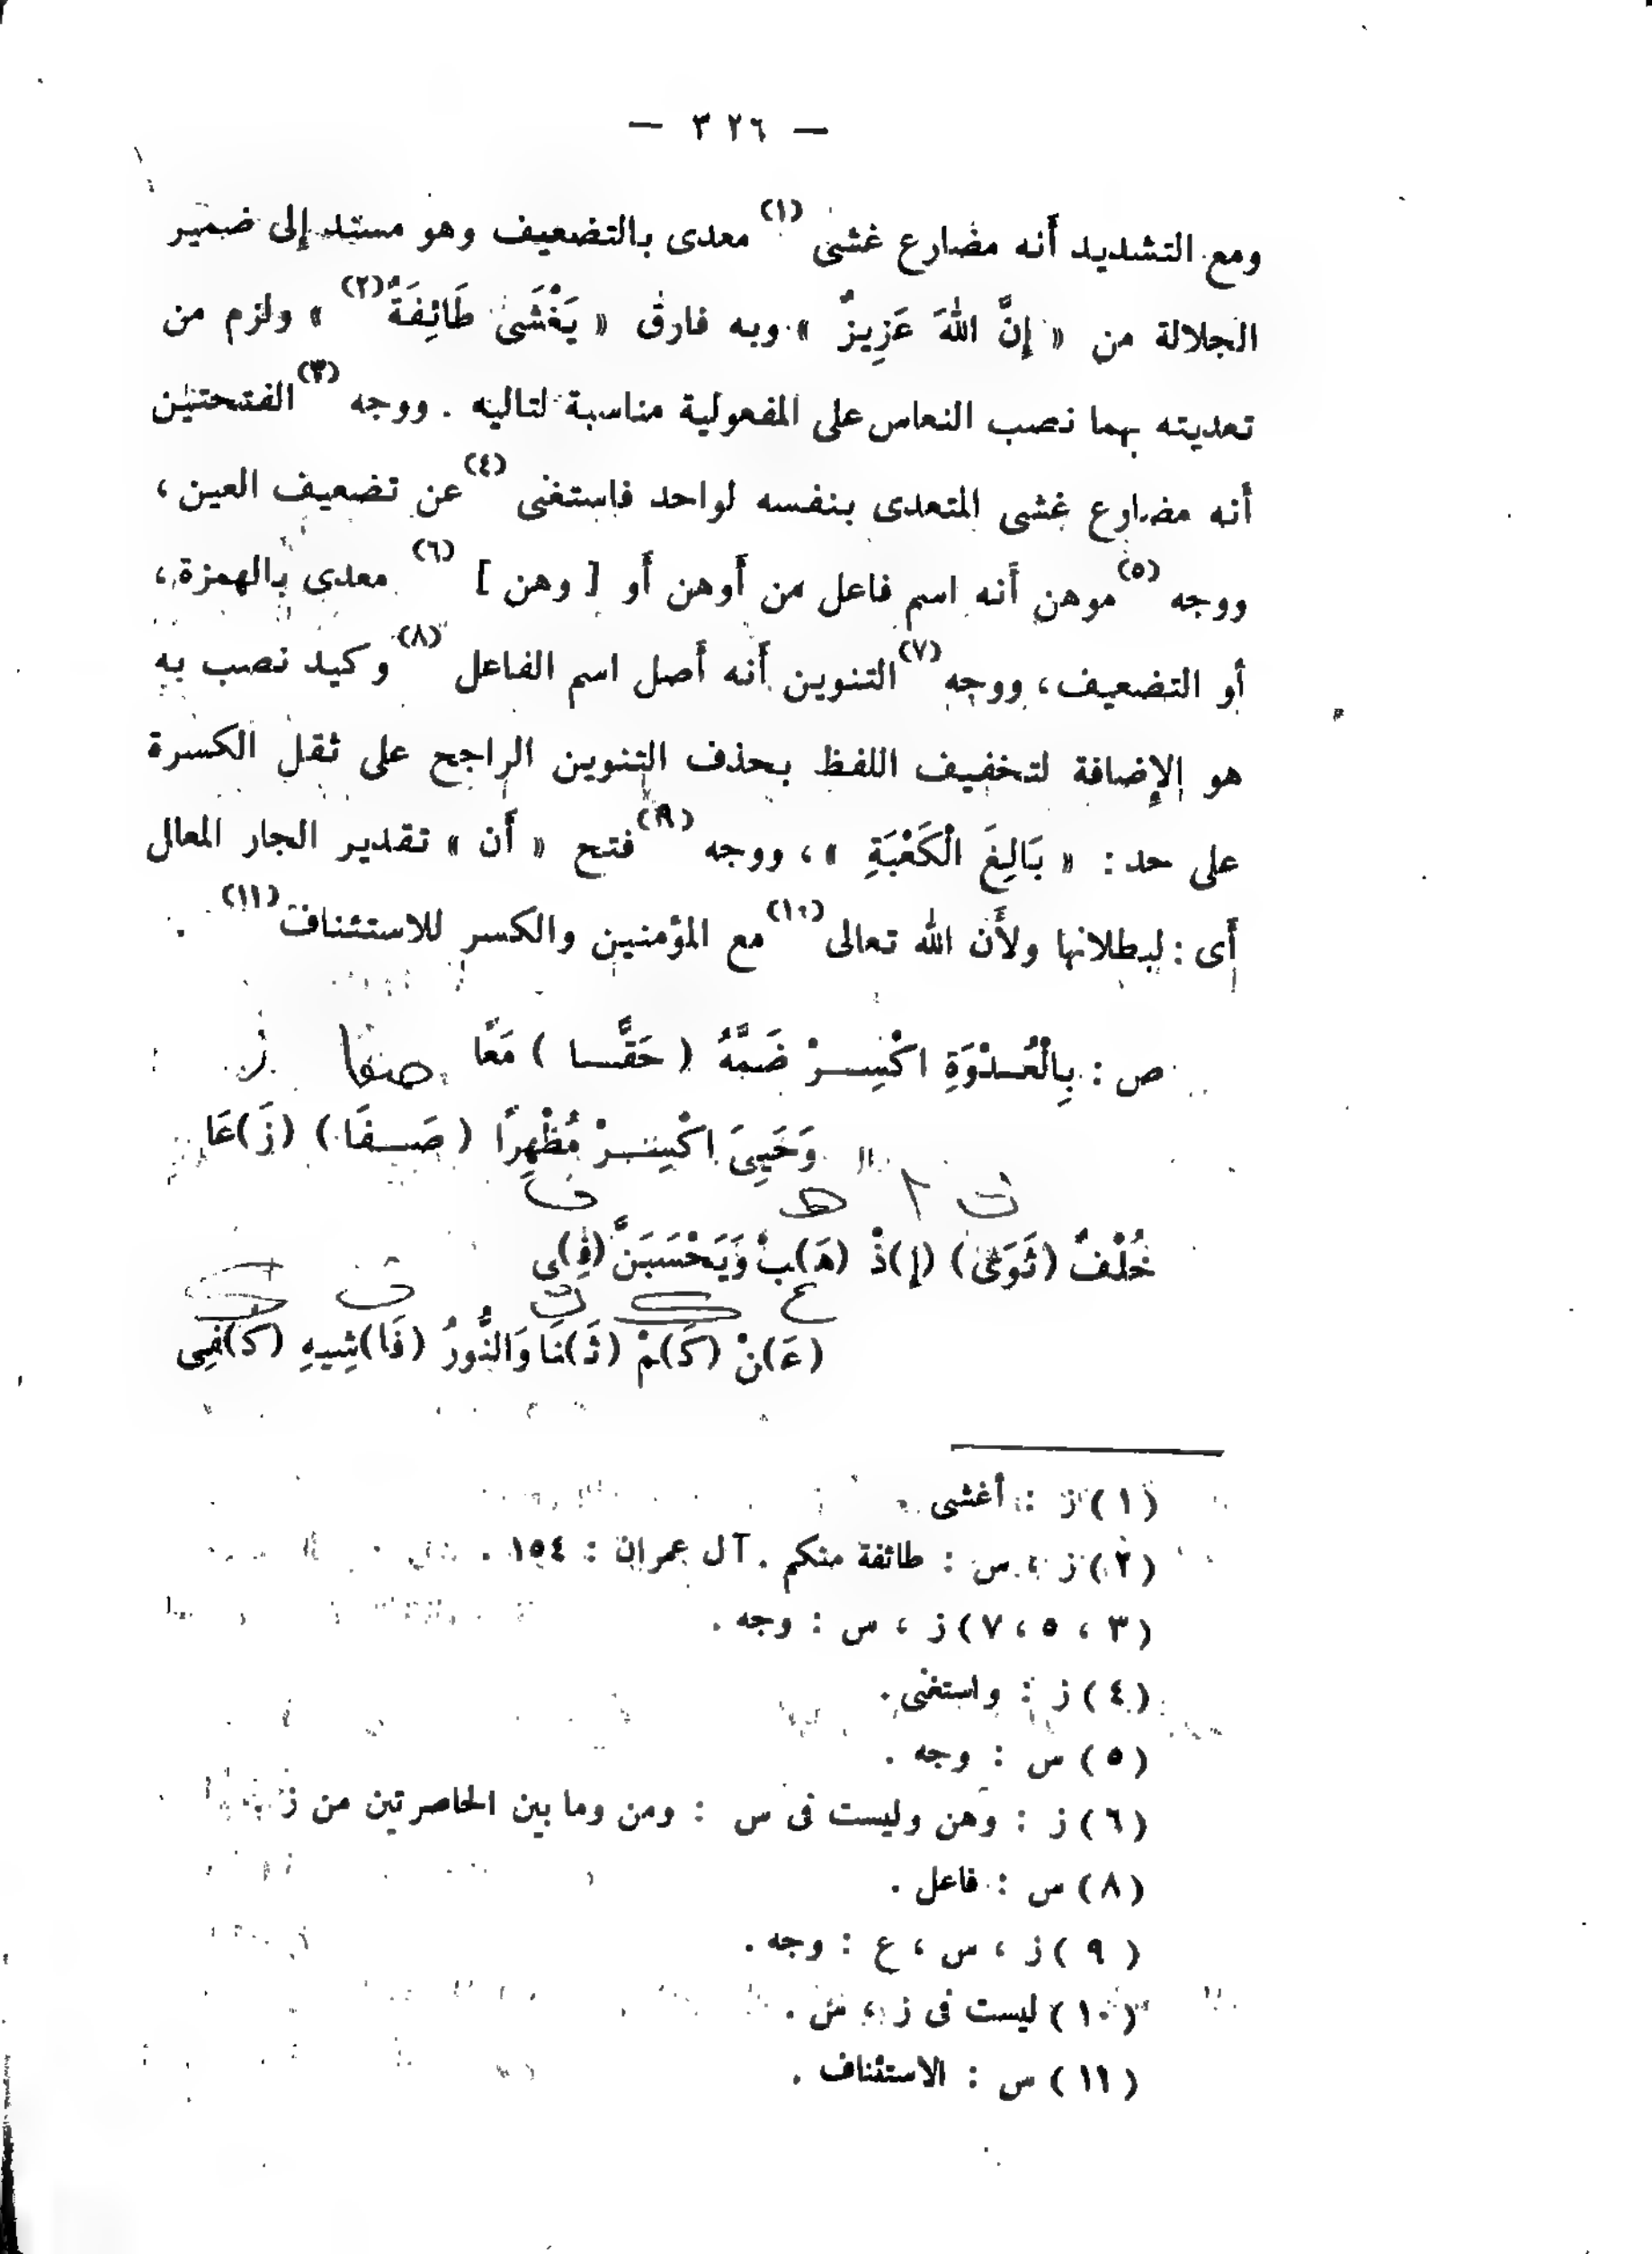 — ٣٢٦ —
ومع التشديد أنه مضارع غشى (١) معدى بالتضعيف وهو مسند إلى ضمير
الجلالة من « إِنَّ اللهَ عَزِيزٌ » وبه فارق « يَغْشَى طَائِفَةً (٢) » ولزم من
تعديته بهما نصب النعاس على المفعولية مناسبة لتاليه . ووجه (٣) الفتحتين
أنه مضارع غشى المتعدى بنفسه لواحد فاستغنى (٤) عن تضعيف العين ،
ووجه (٥) موهن أنه اسم فاعل من أوهن أو [ وهن ] (٦) معدى بالهمزة ،
أو التضعيف ، ووجه (٧) التنوين أنه أصل اسم الفاعل (٨) وكيد نصب به
هو الإضافة لتخفيف اللفظ بحذف التنوين الراجح على ثقل الكسرة
على حد : « بَالِغَ الْكَعْبَةِ » ، ووجه (٩) فتح « أَن » تقدير الجار المعال
أى : لبطلانها ولأَن الله تعالى (١٠) مع المؤمنين والكسر للاستئناف (١١) .
ص : بِالْعُــدْوَةِ اكْسِــرْ ضَمَّهُ ( حَقًّــا ) مَعًا
صفا ز
وَحَيِىَ اكْسِــرْ مُظْهِرًا ( صَــفَا ) (زَ)عَا
ث ا هـ ف
خُلْفٌ (ثَوَى) (إِ)ذْ (هَـ)بْ وَيَحْسَبَنَّ (فِ)ى
ع ك ث ف ك
(عَ)نْ (كَ)مْ (ثَ)نَا وَالنُّورُ (فَا)شِيهِ (كَ)فِى
(١) ز : أغشى .
(٢) ز ، س : طائفة منكم . آل عمران : ١٥٤ .
(٣ ، ٥ ، ٧) ز ، س : وجه .
(٤) ز : واستغنى .
(٥) س : وجه .
(٦) ز : وهن وليست فى س : ومن وما بين الحاصرتين من ز
(٨) س : فاعل .
(٩) ز ، س ، ع : وجه .
(١٠) ليست فى ز ، س .
(١١) س : الاستئناف .